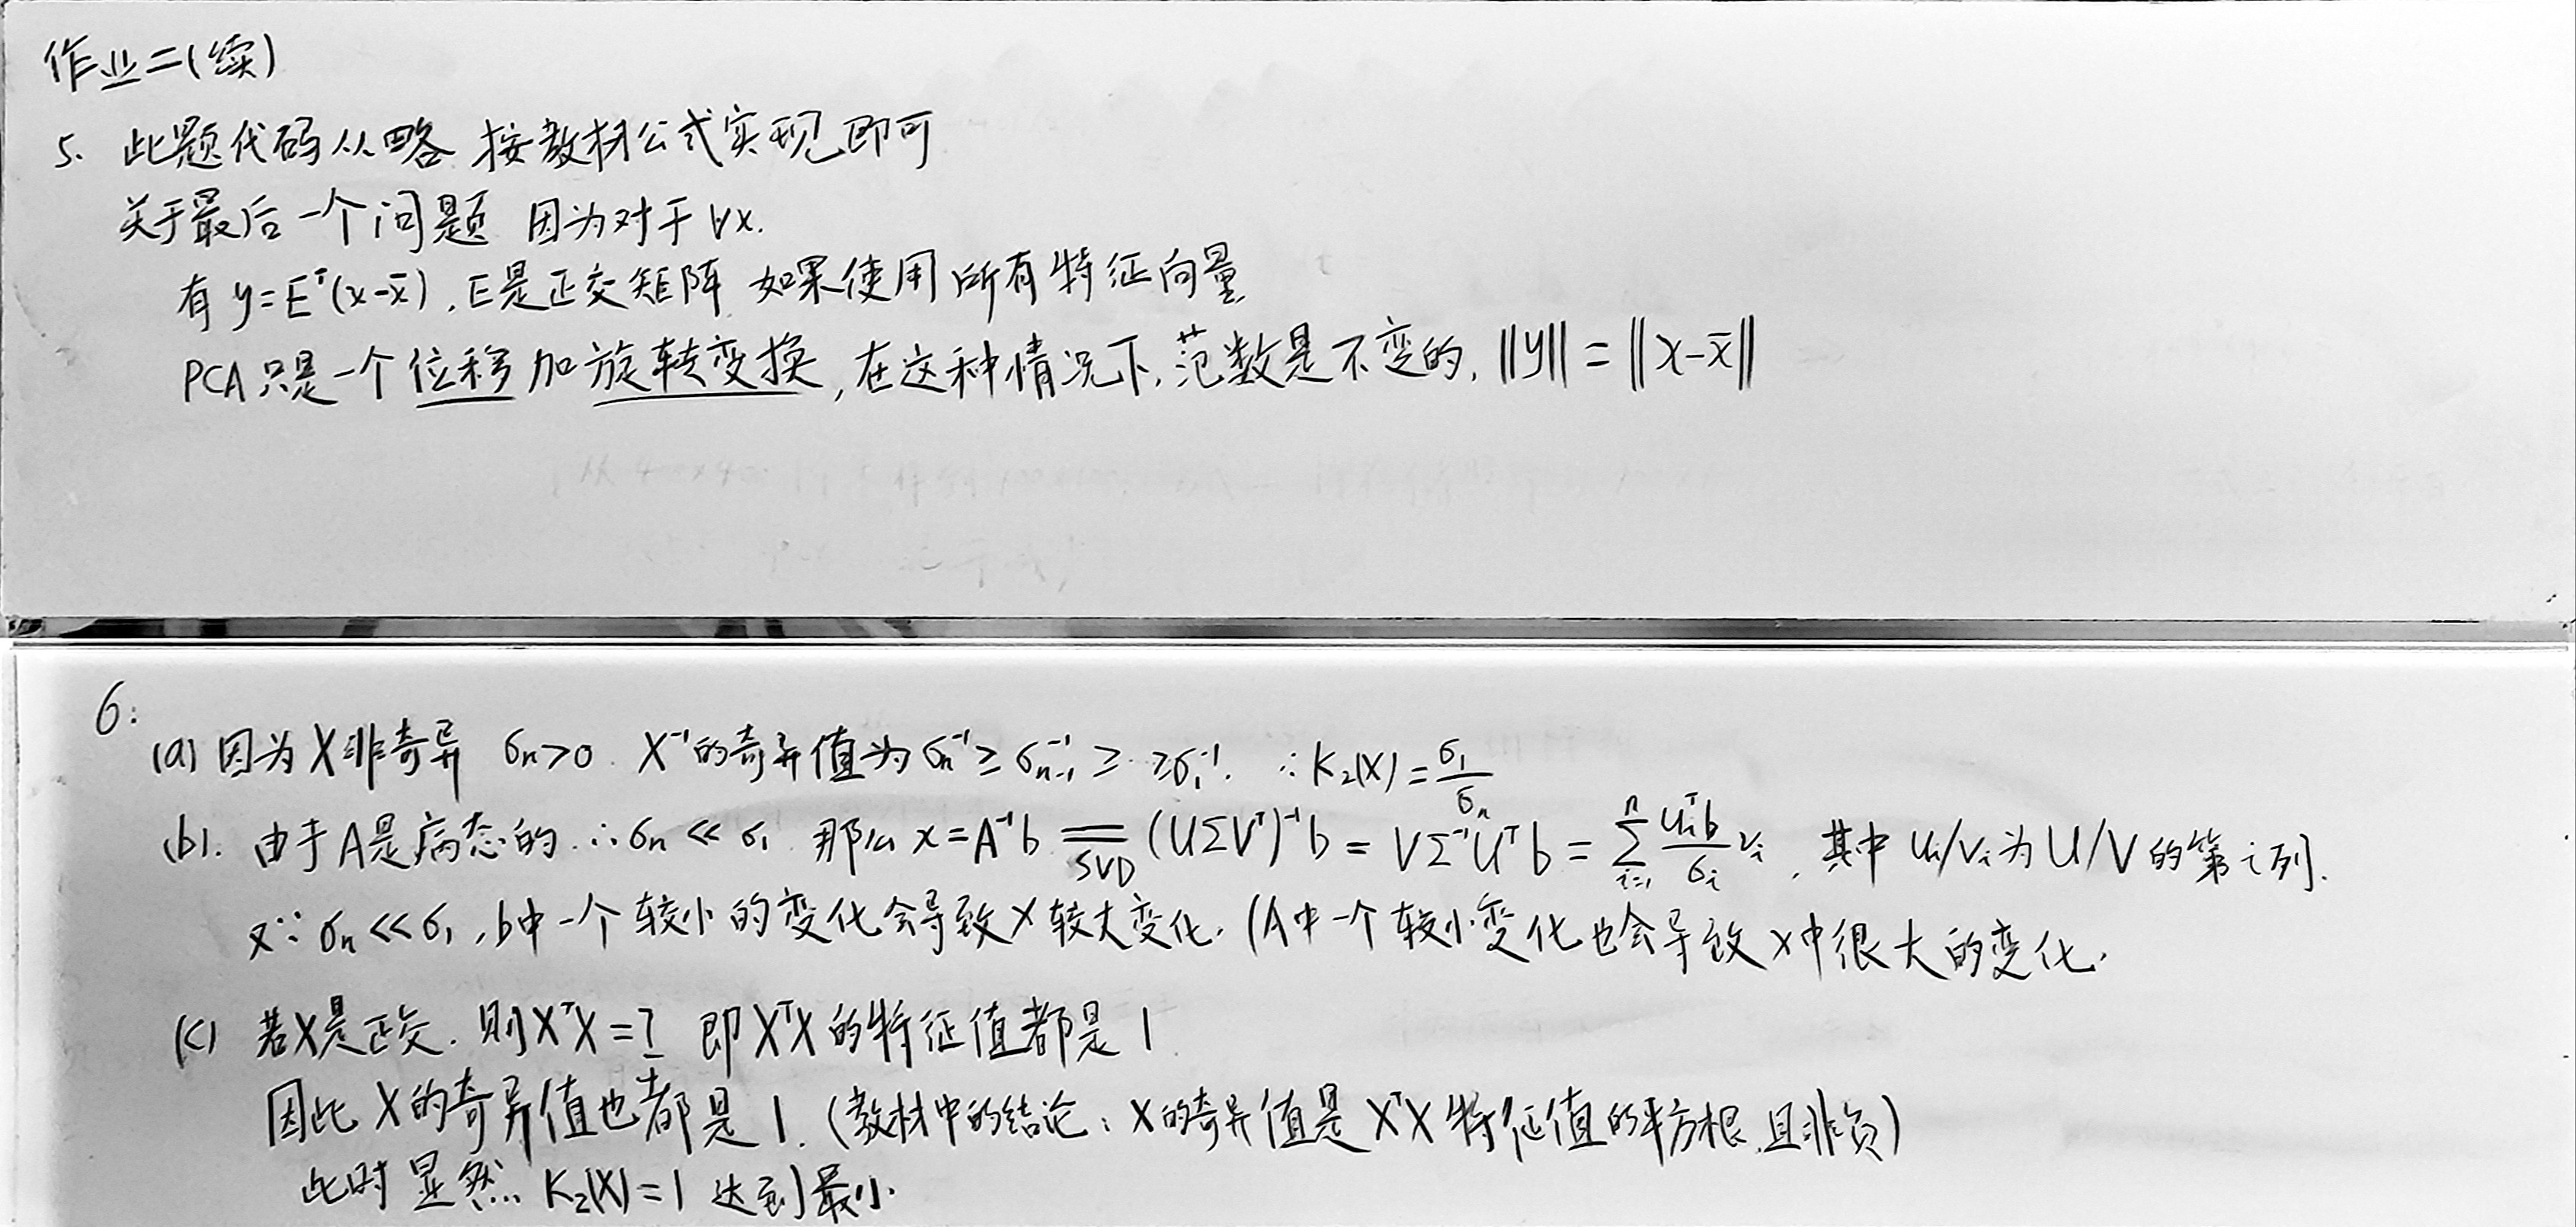 作业二(续)
5. 此题代码从略 按教材公式实现即可
关于最后一个问题 因为对于∀x.
有 y=Eᵀ(x-x̄), E是正交矩阵 如果使用所有特征向量
PCA只是一个位移加旋转变换, 在这种情况下, 范数是不变的, ‖y‖ = ‖x-x̄‖
6:
(a) 因为X非奇异 σₙ>0. X⁻¹的奇异值为 σₙ⁻¹ ≥ σₙ₋₁⁻¹ ≥ … ≥ σ₁⁻¹. ∴ K₂(X) = σ₁/σₙ
(b). 由于A是病态的 ∴ σₙ ≪ σ₁ 那么 x = A⁻¹b =(SVD) (UΣVᵀ)⁻¹b = VΣ⁻¹Uᵀb = Σᵢ₌₁ⁿ (uᵢᵀb/σᵢ) vᵢ, 其中 uᵢ/vᵢ 为 U/V 的第 i 列.
又∵ σₙ ≪ σ₁, b中一个较小的变化会导致x较大变化. (A中一个较小变化也会导致x中很大的变化.
(c) 若X是正交. 则XᵀX = I 即XᵀX的特征值都是1
因此X的奇异值也都是±1. (教材中的结论: X的奇异值是XᵀX特征值的平方根, 且非负)
此时显然.. K₂(X) = 1 达到最小.